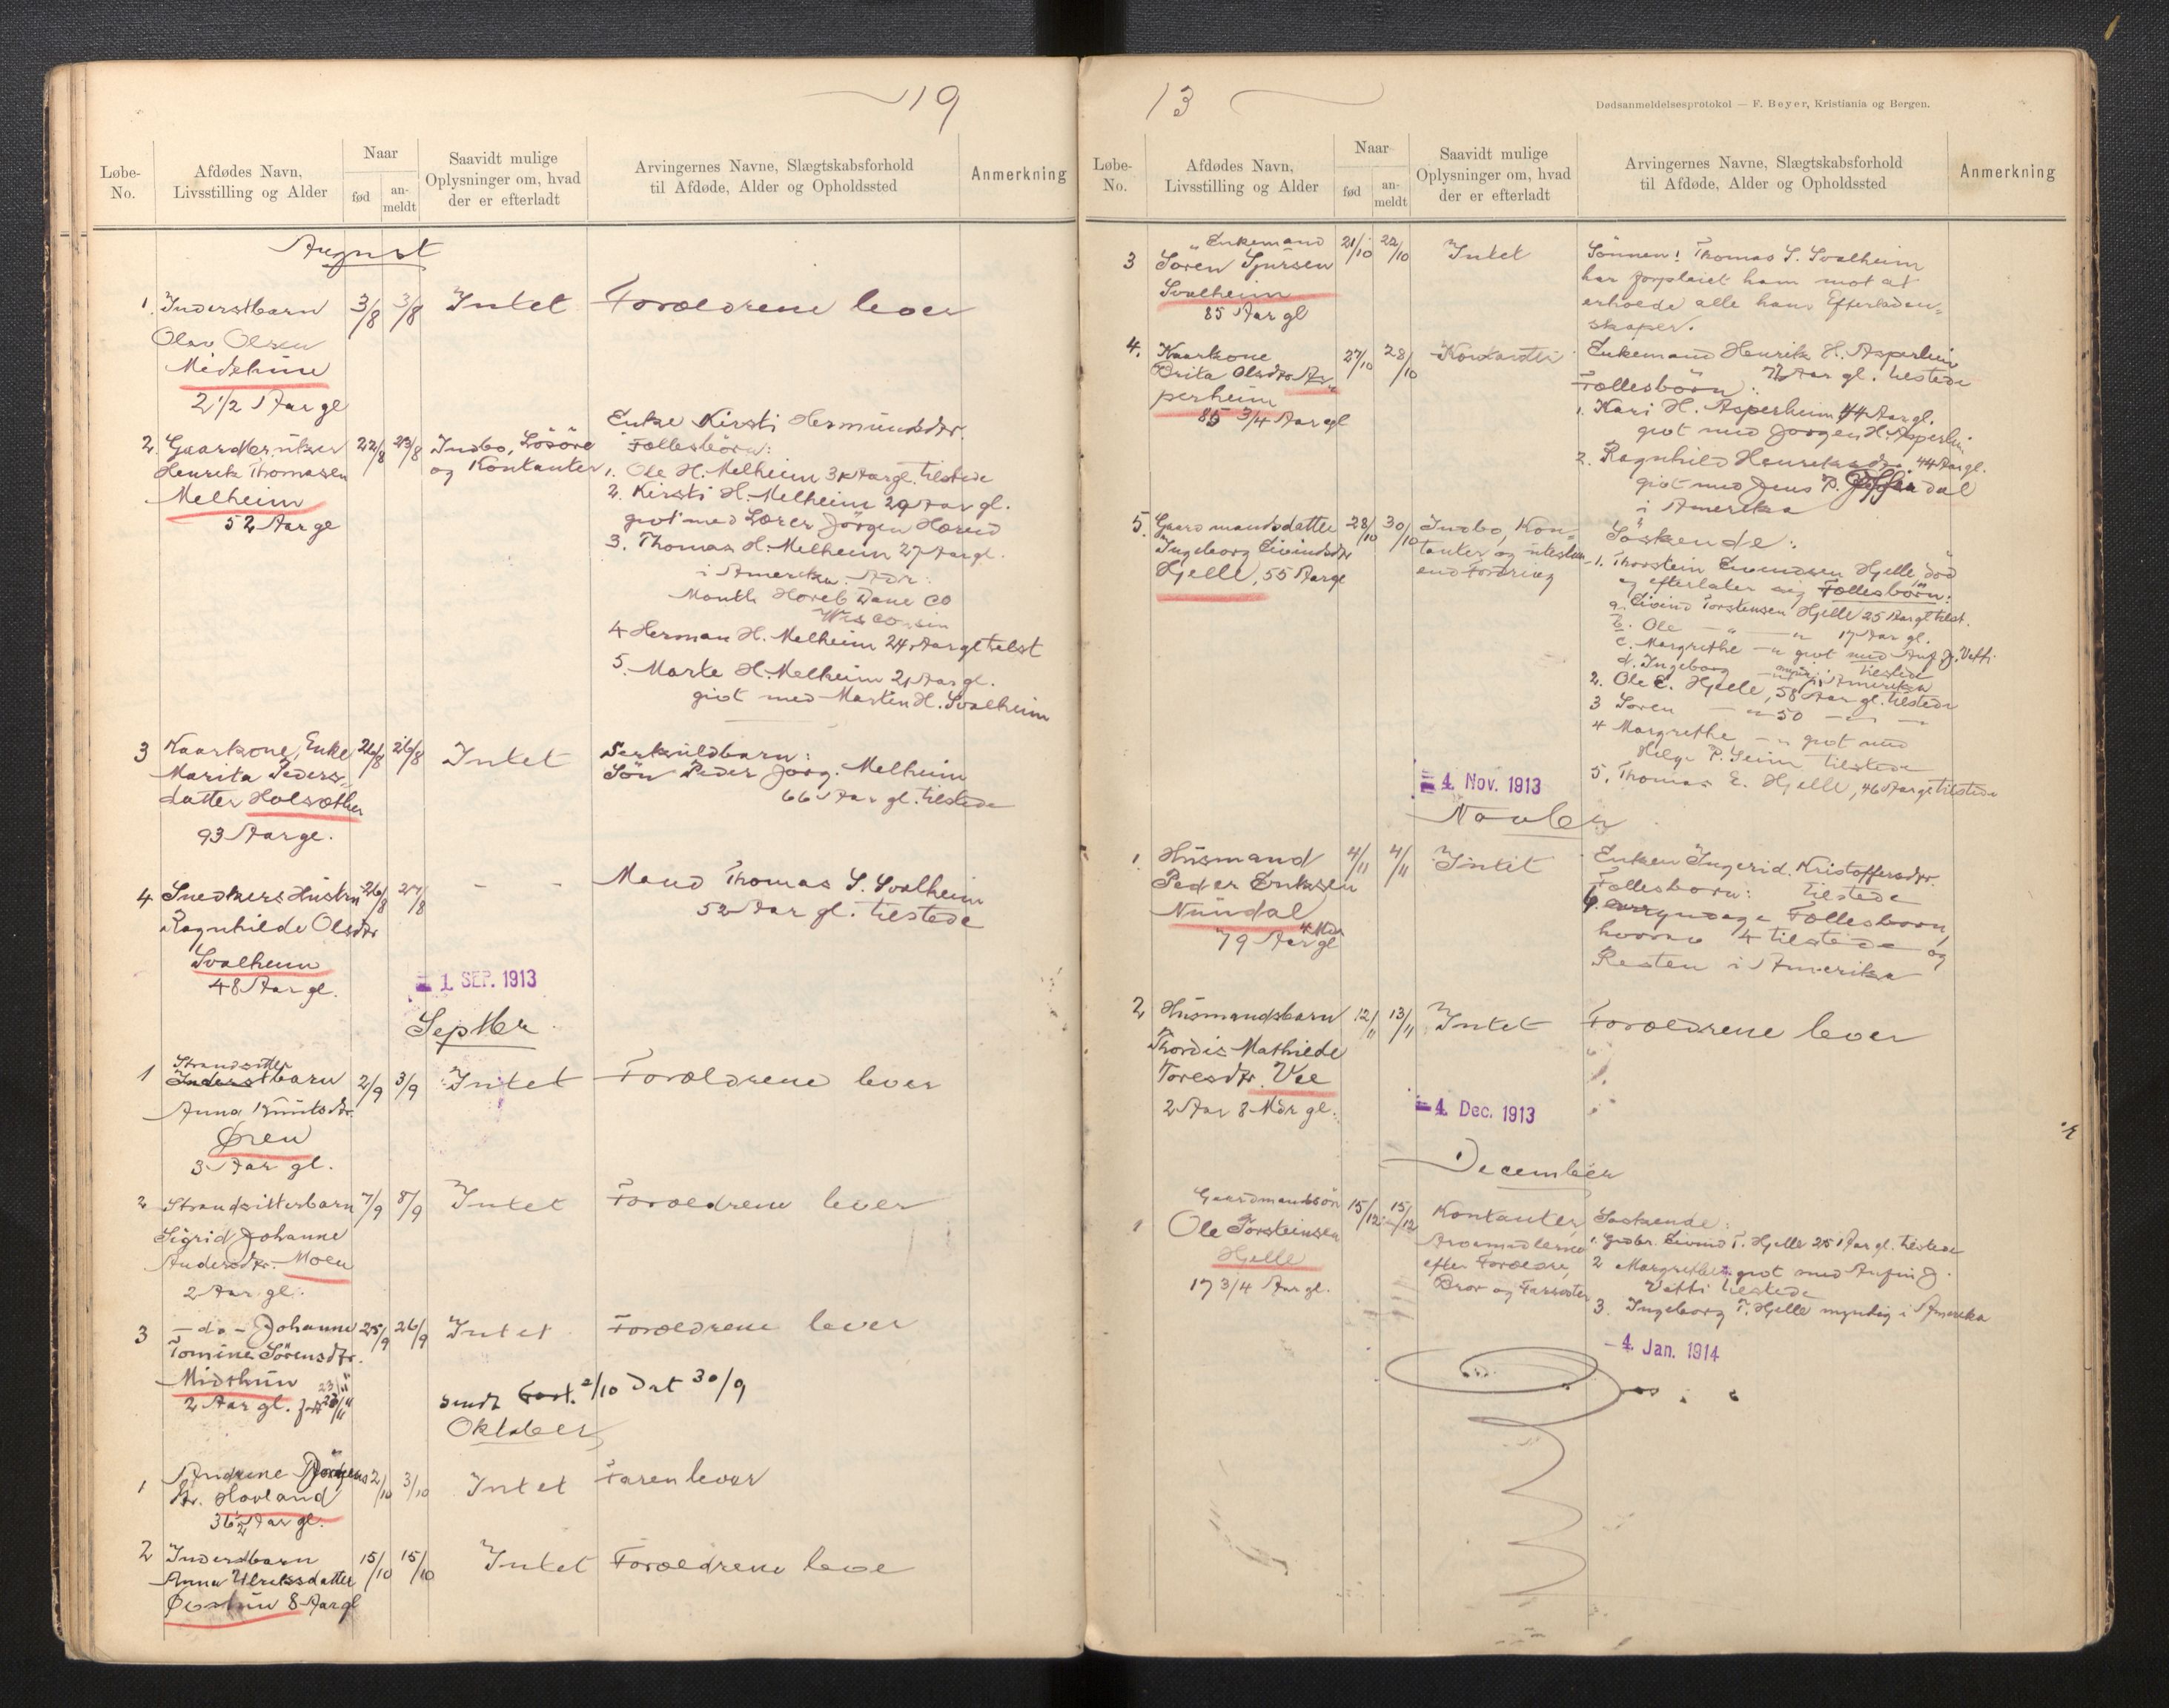 19
Løbe-
No.
Afdødes Navn,
Livsstilling og Alder
Naar
fød
an-
meldt
Saavidt mulige
Oplysninger om, hvad
der er efterladt
Arvingernes Navne, Slægtskabsforhold
til Afdøde, Alder og Opholdssted
Anmerkning
August
1. Inderstbarn 3/8 3/8 Intet Forældrene lever
Olav Olsen
Midthun
2 1/2 Aar gl
Enke Kirsti Hermundsdtr.
2. Gaardbruker 22/8 23/8 Indbo, Lösöre Fællesbörn:
Henrik Thomasen og Kontanter 1. Ole H. Melheim Aar gl. tilstede
Melheim 2. Kirsti H. Melheim 29 Aar gl.
52 Aar gl giot med Lærer Jörgen
3. Thomas H. Melheim 27 Aar gl.
i Amerika. Adr:
Month Horeb Dane CO
Wisconsin
4 Herman H. Melheim 24 Aar gl tilst
5. Marte H. Melheim 21 Aar gl.
giot med Martin H. Svalheim
3 Kaarkone, Enke 26/8 26/8 Intet Særkuldbarn:
Marita Peders- Sön Peder Jörg. Melheim
datter Holsæther 66 Aar gl. tilstede
93 Aar gl.
4 Snedkers Hustru 26/8 27/8 - - Mand Thomas S. Svalheim
Ragnhilde Olsdtr 52 Aar gl. tilstede
Svalheim
48 Aar gl.
= 1. SEP. 1913
Septbr
Strandsitter
1 Inderstbarn 2/9 3/9 Intet Forældrene lever
Anna Knutsdtr.
Øren
3 Aar gl.
2 Strandsitterbarn 7/9 8/9 Intet Forældrene lever
Sigrid Johanne
Andersdtr. Moen
2 Aar gl.
3 - do - Johanne 25/9 26/9 Intet Forældrene lever
Tomine Sörensdtr.
Midthun
2 Aar gl.
sendt 2/10 Dat 30/9
Oktober
1 Andrine 2/10 3/10 Intet Faren lever
dtr. Hovland
36 1/2 Aar gl.
2 Inderstbarn 15/10 15/10 Intet Forældrene leve
Anna Ulriksdatter
Øvsthun 8 Aar gl
13
Dødsanmeldelsesprotokol — F. Beyer, Kristiania og Bergen.
Løbe-
No.
Afdødes Navn,
Livsstilling og Alder
Naar
fød
an-
meldt
Saavidt mulige
Oplysninger om, hvad
der er efterladt
Arvingernes Navne, Slægtskabsforhold
til Afdøde, Alder og Opholdssted
Anmerkning
Enkemand 21/10 22/10 Intet Sönnen: Thomas S. Svalheim
3 Soren Sjursen har forpleiet ham mot at
Svalheim erholde alle hans Efterladen-
85 Aar gl skaper.
4. Kaarkone 27/10 28/10 Kontanter Enkemand Henrik H. Asperheim
Brita Olsdtr As- Aar gl. tilstede
perheim Fællesbörn:
85 3/4 Aar gl 1. Kari H. Asperheim 44 Aar gl.
giot med Jörgen H. Asperheim
2. Ragnhild Henriksdtr. 44 Aar gl.
giot med Jens P.
i Amerika
5. Gaardmandsdatter 28/10 30/10 Indbo, Kon- Söskende:
Ingeborg Eivindsdtr tanter og utestaa- 1. Thorstein Eivindsen Hjelle, död
Hjelle, 55 Aar gl end Fordring og efterlater sig Fællesbörn:
a. Eivind Torstensen Hjelle 25 Aar gl tilst.
b. Ole - " - " 17 Aar gl.
c. Margrethe - " giot med Anf J. Vetti
tilstede
d. Ingeborg - myndig i Amerika
2. Ole E. Hjelle, 58 Aar gl. tilstede
3 Soren - " 50 - " -
4 Margrethe - " giot med
Helge P. Seim tilstede
5. Thomas E. Hjelle, 46 Aar gl tilstede
= 4. Nov. 1913
Novber
1. Husmand 4/11 4/11 Intet Enken Ingerid Kristoffersdtr.
Peder Eriksen Fællesbörn: tilstede
Nundal Fællesborn,
79 Aar 4 Mdr gl hvorav 4 tilstede og
Resten i Amerika
2 Husmandsbarn 12/11 13/11 Intet Forældrene lever
Thordis Mathilde
Toresdtr. Vee
2 Aar 8 Mdr gl.
= 4. Dec. 1913
December
Gaardmandssön 15/12 15/12 Kontanter, Söskende:
1 Ole Torsteinsen Arvemidlerne 1. Gdbr. Eivind T. Hjelle 25 Aar gl. tilstede
Hjelle efter Forældre, 2 Margrethe giot med Anfin J.
17 3/4 Aar gl. Bror og Farsöster Vetti tilstede
3. Ingeborg T. Hjelle myndig i Amerika
- 4. Jan. 1914